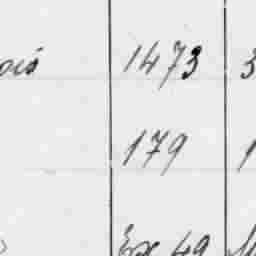 ois 1473 3
179 1
Ex 49